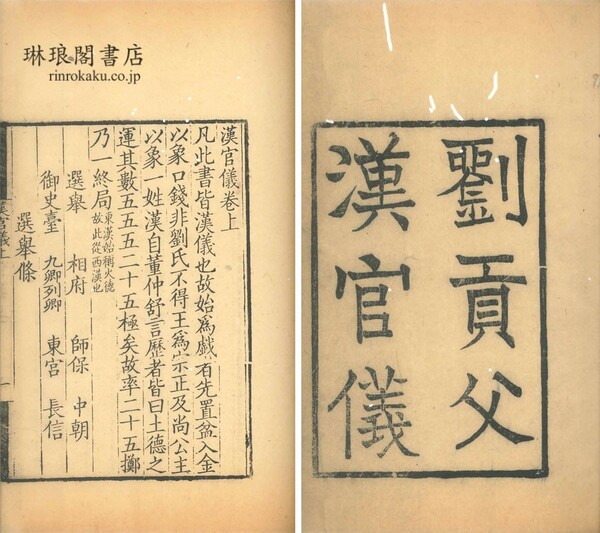 琳琅閣書店
rinrokaku.co.jp
漢官儀卷上
凡此書皆漢儀也故始為戲者先置盆入金
以象口錢非劉氏不得王為宗正及尚公主
以象一姓漢自董仲舒言歷者皆曰土德之
運其數五五五二十五極矣故率二十五擲
乃一終局東漢始稱火德
故此從西漢也
選舉 相府 師保 中朝
御史臺 九卿列卿 東宮 長信
選舉條
漢官儀上
一
劉貢父
漢官儀